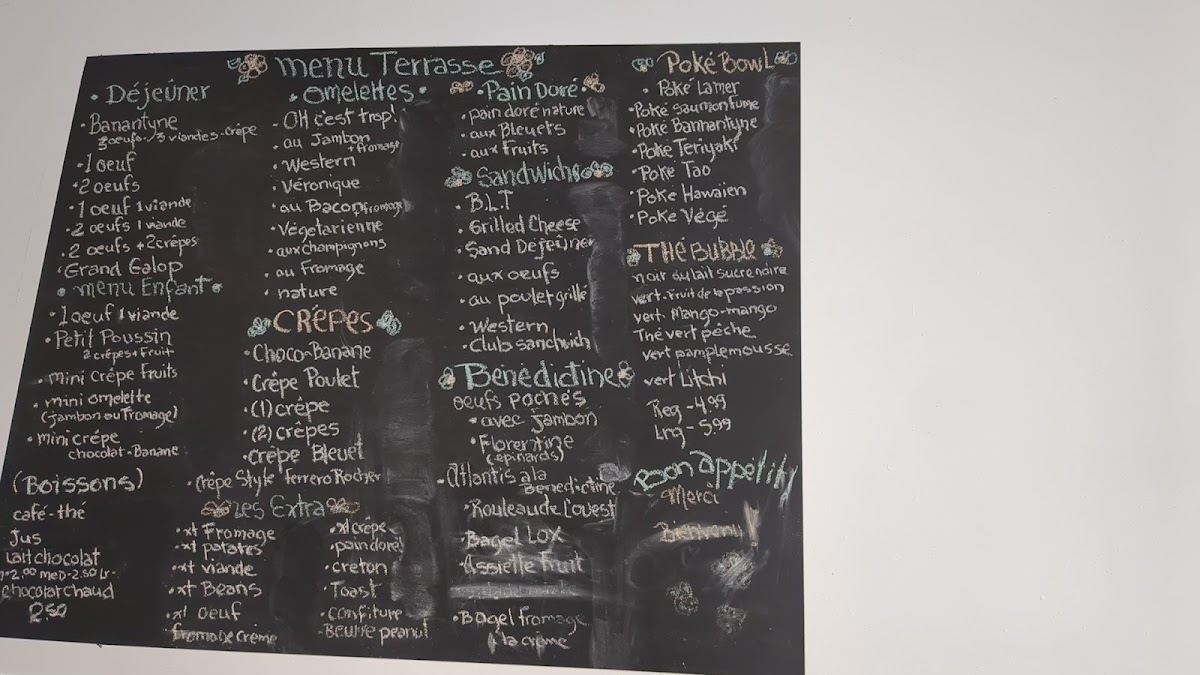 menu Terrasse
• Déjeûner
• Banantyne
3 oeufs-/3 viandes-crêpe
• 1 oeuf
• 2 oeufs
• 1 oeuf 1 viande
• 2 oeufs 1 viande
• 2 oeufs + 2 crêpes
• Grand Galop
• menu Enfant •
• 1 oeuf 1 viande
• Petit Poussin
2 crêpes + Fruit
• mini Crêpe Fruits
• mini omelette
(jambon ou Fromage)
• mini crêpe
chocolat-Banane
(Boissons)
café-thé
Jus
Lait chocolat
2.00 med-2.50 Lr-
chocolat chaud
2.50
• omelettes •
- OH c'est trop!
• au Jambon
+ fromage
• Western
• Véronique
• au Bacon + fromage
• Végetarienne
• aux champignons
• au Fromage
• nature
CRÊPES
• Choco-Banane
• Crêpe Poulet
• (1) crêpe
• (2) crêpes
• crêpe Bleuet
• crêpe Style ferrero Rocher
Les Extra
• xt Fromage
• xt patates
• xt viande
• xt Beans
• xt oeuf
fromage creme
• xt crêpe
• pain doré
• creton
• Toast
• confiture
- Beurre peanut
• Pain Doré •
• pain doré nature
• aux Bleuets
• aux Fruits
Sandwichs
• B.L.T
• Grilled Cheese
• Sand Déjeuner
• aux oeufs
• au poulet grillé
• Western
• Club sandwich
Bénédictine
oeufs pochés
• avec jambon
• Florentine
(épinards)
- Atlantis à la
Benedictine
• Rouleau de L'ouest
• Bagel Lox
• Assiette Fruit
• Bagel fromage
à la crème
Poké Bowl
• Poké Lamer
• Poké saumon fume
• Poké Bannantyne
• Poké Teriyaki
• Poké Tao
• Poke Hawaïen
• Poke Végé
Thé Bubble
noir au lait sucre noire
vert-Fruit de la passion
vert. Mango-mango
Thé vert pêche
vert pamplemousse
vert Litchi
Reg - 4.99
Lrg - 5.99
Bon appétit
Merci
Bienvenu